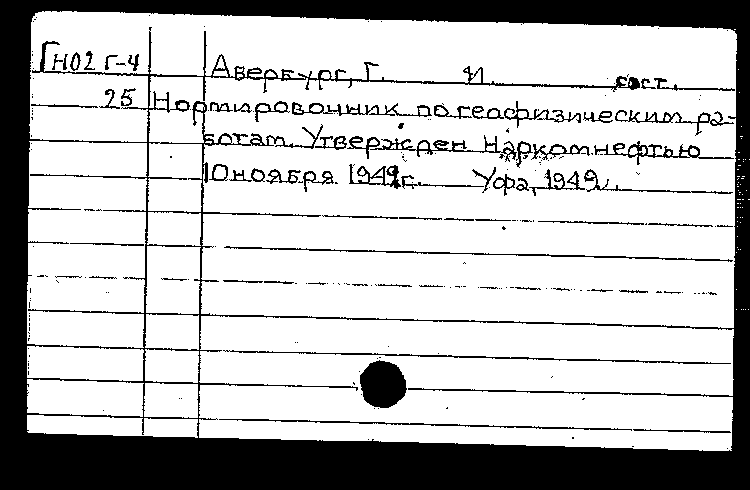 ГН02 Г-4 Авербург, Г. И. сост.
25 Нормировочник по геофизическим ра-
ботам. Утвержден Наркомнефтью
10 ноября 1942г. Уфа, 1942.